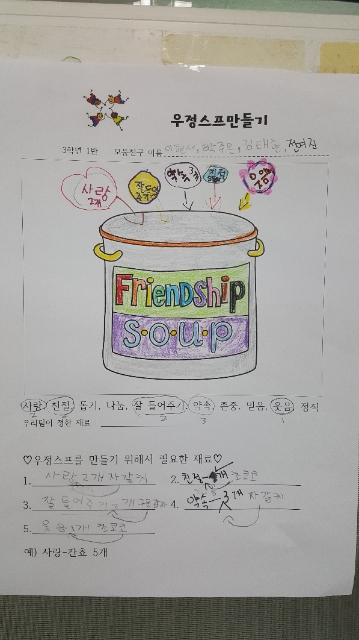 우정스프만들기
3학년 1반 모둠친구 이름
사랑 2개
잘들어
약속 3개
친절
웃음
Friendship
S·o·u·p
사랑, 친절, 돕기, 나눔, 잘 들어주기, 약속, 존중, 믿음, 웃음, 정직
2 2 3 1
우리팀이 정한 재료
♡우정스프를 만들기 위해서 필요한 재료♡
1. 사랑 2개 자갈치 2. 친절 개 칸쵸
3. 잘 들어주기 개 4. 약속 3개 자갈치
5. 웃음 개 칸쵸
예) 사랑-칸쵸 5개